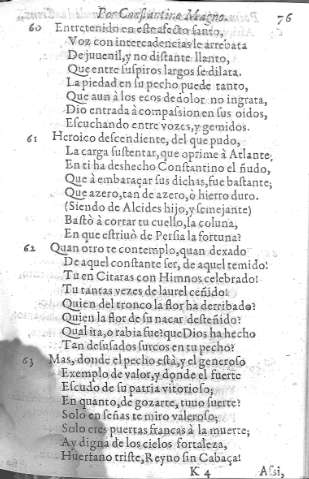 Por Constantino Magno. 76
60 Entretenido en este afecto santo,
Voz con intercadencias le arrebata
De juuenil, y no distante llanto,
Que entre suspiros largos se dilata.
La piedad en su pecho puede tanto,
Que aun à los ecos de dolor no ingrata,
Dio entrada à compasion en sus oidos,
Escuchando entre vozes, y gemidos.
61 Heroico descendiente, del que pudo,
La carga sustentar, que oprime à Atlante,
En ti ha deshecho Constantino el ñudo,
Que à embaraçar sus dichas, fue bastante;
Que azero, tan de azero, ò hierro duro.
(Siendo de Alcides hijo, y semejante)
Bastò à cortar tu cuello, la coluna,
En que estriuò de Persia la fortuna?
62 Quan otro te contemplo, quan dexado
De aquel constante ser, de aquel temido!
Tu en Citaras con Himnos celebrado!
Tu tantas vezes de laurel ceñido!
Quien del tronco la flor ha derribado?
Quien la flor de su nacar desteñido?
Qual ira, o rabia fue? que Dios ha hecho
Tan desusados surcos en tu pecho?
63 Mas, donde el pecho està, y el generoso
Exemplo de valor, y donde el fuerte
Escudo de su patria vitorioso;
En quanto, de gozarte, tuuo suerte?
Solo en señas te miro valeroso;
Solo eres puertas francas à la muerte;
Ay digna de los cielos fortaleza,
Huerfano triste, Reyno sin Cabaça!
K 4 Assi,